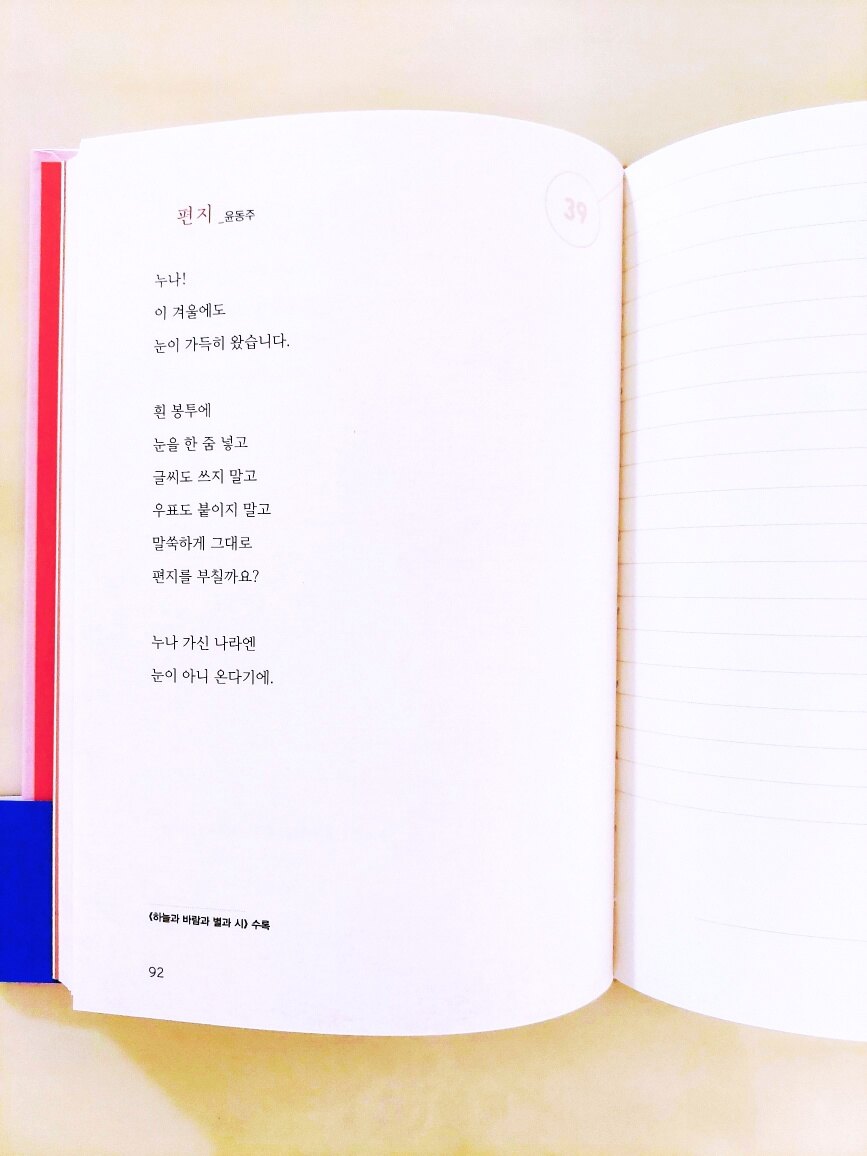 편지 _윤동주
39
누나!
이 겨울에도
눈이 가득히 왔습니다.
흰 봉투에
눈을 한 줌 넣고
글씨도 쓰지 말고
우표도 붙이지 말고
말쑥하게 그대로
편지를 부칠까요?
누나 가신 나라엔
눈이 아니 온다기에.
《하늘과 바람과 별과 시》 수록
92